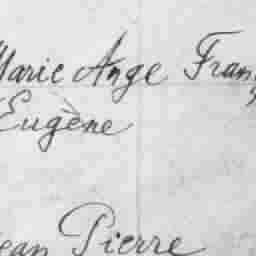 Marie Ange Fran
Eugène
Jean Pierre